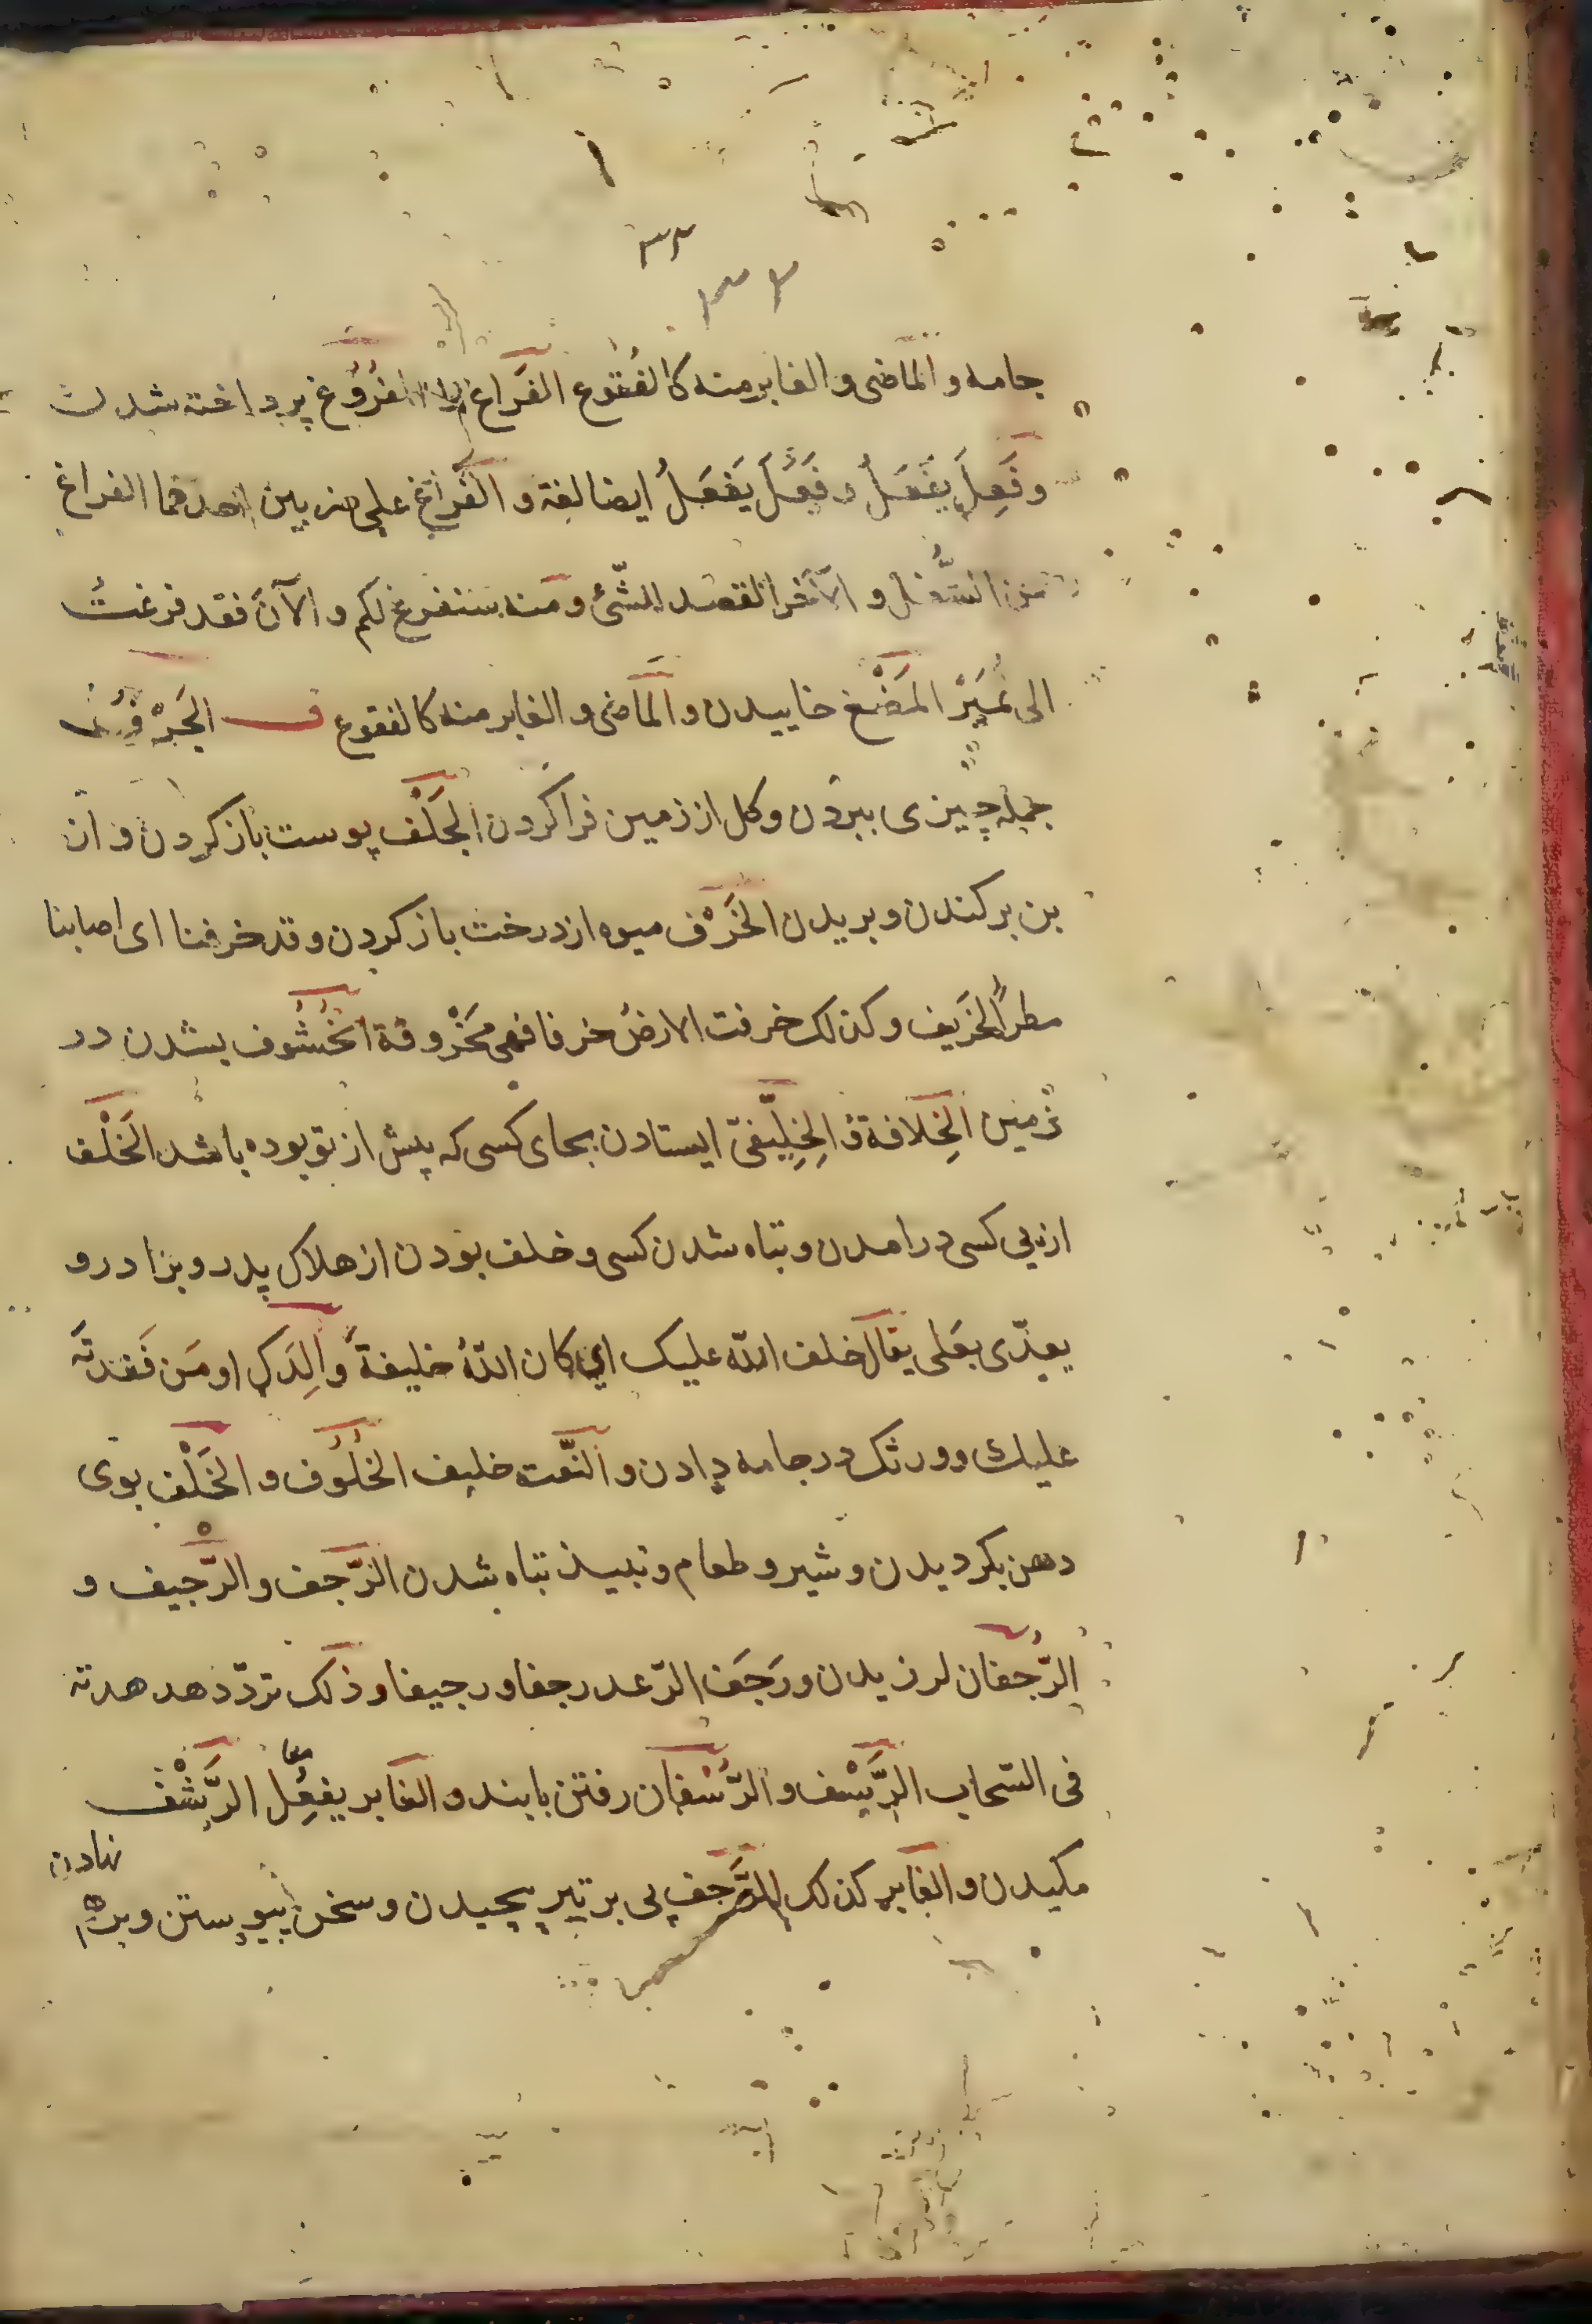 ۳۳
۳۳
جامه و الماضی و الغابر منه کالفُقُوع الفَرَاغ و الفُرُوغ پرداخته شدن
و فَعِلَ یَفعَلُ و فَعَلَ یَفعَلُ ایضا لغة و الفَرَاغ علی ضربین احدهما الفراغ
من الشُّغل و الآخر القصد للشّیء و منه سنفرغ لکم و الآن فقد فرغتُ
الی نُمَیرٍ المَضْغ خاییدن و الماضی و الغابر منه کالفقوع ف الجَرْف
جمله چیزی ببردن و کل از زمین فراکردن الجَلْف پوست باز کردن و از
بن برکندن و بریدن الخَرْف میوه از درخت باز کردن و قد خرفنا ای اصابنا
مطر الخَریف و کذلک خرفت الارضُ خرفا فهی مَخْروفة الخُشُوف بشدن در
زمین الخِلافة و الخِلِّیفی ایستادن بجای کسی که پیش از تو بوده باشد الخَلْف
از پی کسی درامدن و تباه شدن کسی و خلف بودن از هلاک پدر و بزادر و
یعدّی بعلی یقال خلف الله علیک ای کان اللهُ خلیفةَ والِدَکِ او مَن فَقَدتَه
علیک و ورثک در جامه دادن و النّعت خلیف الخُلُوف و الخَلْف بوی
دهن بکردیدن و شیر و طعام و نبیذ تباه شدن الرَّجف و الرَّجیف و
الرَّجفان لرزیدن و رَجَف الرّعد رجفا و رجیفا و ذلک تردّد هدهدته
فی السّحاب الرَّسْف و الرَّسَفان رفتن با بند و الغابر یفعِل الرَّشْف
مکیدن و الغابر کذلک الرَّصْف پی بر تیر پیچیدن و سخن پیوستن و برهم
نهادن